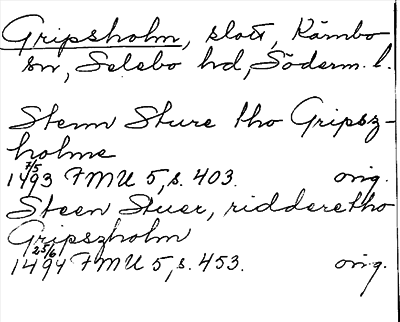 Gripsholm, slott, Kärnbo
sn, Selebo hd, Söderm. l.
Stenn Sture tho Gripsz-
holme
7/5
1493 FMU 5, s. 403. orig.
Steen Stuer, ridderetho
Gripszholm
25/6
1494 FMU 5, s. 453. orig.